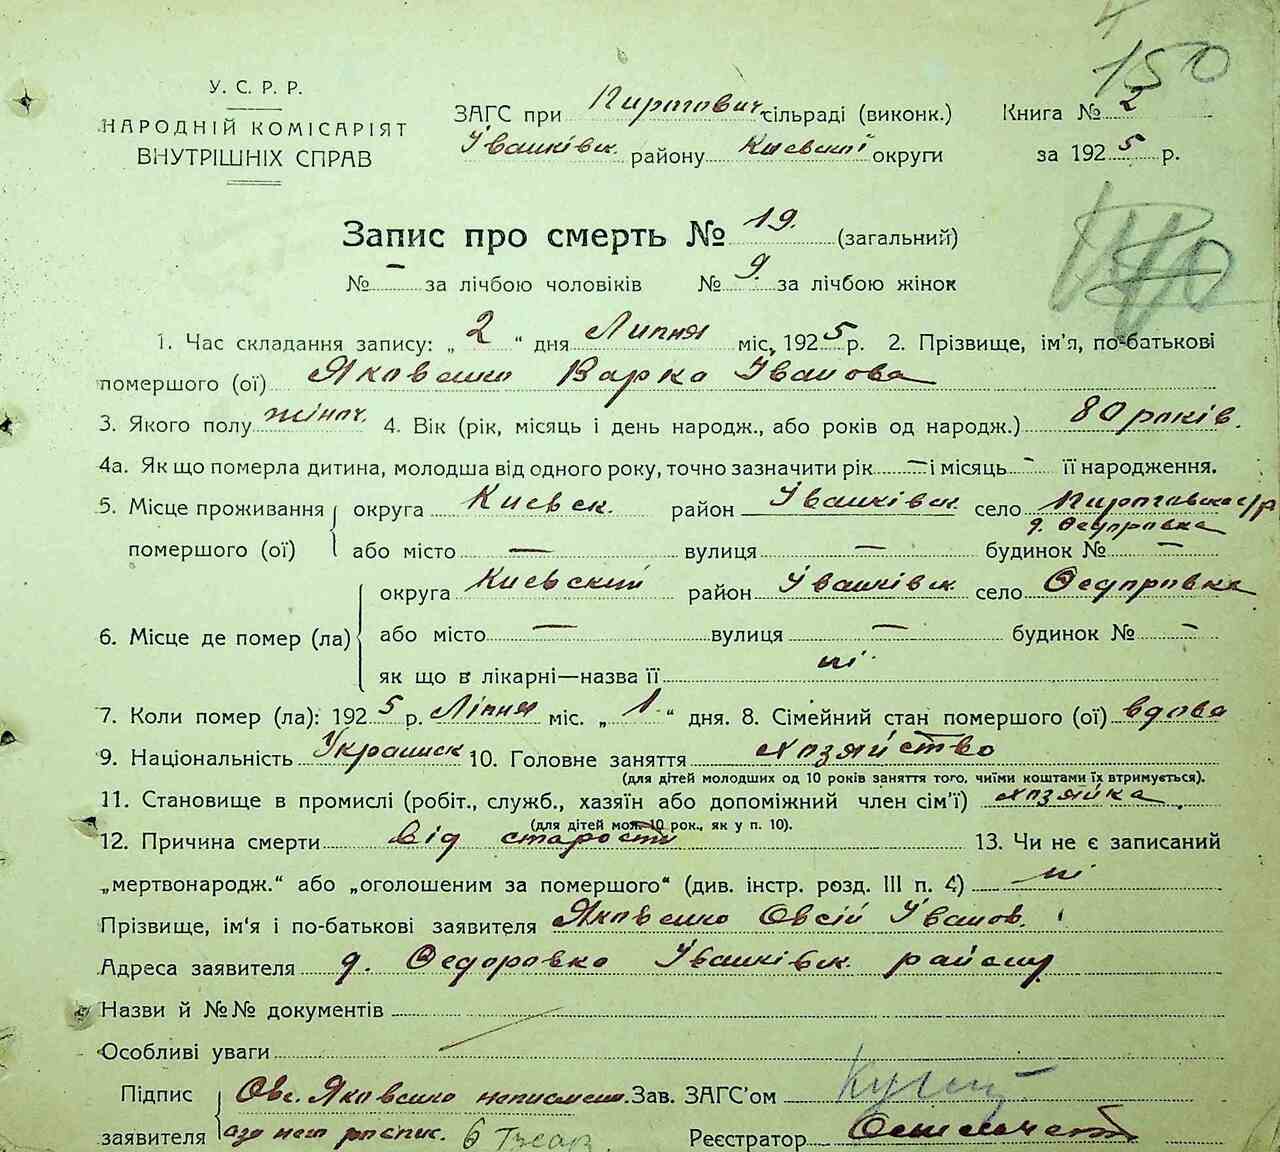 150
У. С. Р. Р.
НАРОДНІЙ КОМІСАРІЯТ
ВНУТРІШНІХ СПРАВ
ЗАГС при сільраді (виконк.) Книга № 2
Іванківск. району Киевскої округи за 1925 р.
Запис про смерть № 19. (загальний)
№ — за лічбою чоловіків № 9. за лічбою жінок
1. Час складання запису: „ 2 “ дня Липня міс. 1925 р. 2. Прізвище, ім’я, по-батькові
помершого (ої) Яковенко Варка Іванова
3. Якого полу жіноч. 4. Вік (рік, місяць і день народж., або років од народж.) 80 років.
4а. Як що померла дитина, молодша від одного року, точно зазначити рік — і місяць - її народження.
5. Місце проживання округа Киевск. район Іванківск. село
д. Федоровка
помершого (ої) або місто — вулиця — будинок № —
округа Киевский район Іванківск село Федоровка
6. Місце де помер (ла) або місто — вулиця — будинок № -
як що в лікарні—назва її ні.
7. Коли помер (ла): 1925 р. Ліпня міс. „ 1. “ дня. 8. Сімейний стан помершого (ої) вдова
9. Національність Украинск. 10. Головне заняття хозяйство
(для дітей молодших од 10 років заняття того, чиїми коштами їх втримується).
11. Становище в промислі (робіт., служб., хазяїн або допоміжний член сім’ї) хозяйка
(для дітей мол. 10 рок., як у п. 10).
12. Причина смерти від старости 13. Чи не є записаний
„мертвонародж.“ або „оголошеним за помершого“ (див. інстр. розд. III п. 4) ні
Прізвище, ім’я і по-батькові заявителя Яковенко Овсій Іванов.
Адреса заявителя д. Федоровка Іванківск. району
Назви й №№ документів
Особливі уваги
Підпис Овс. Яковенко неписмен. Зав. ЗАГС’ом
заявителя Реєстратор